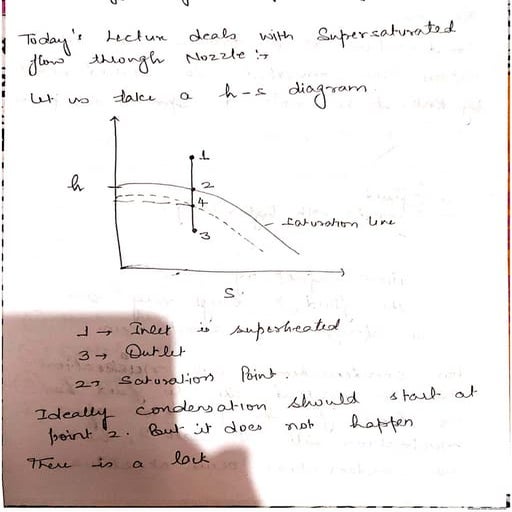 Today's Lecture deals with Supersaturated
flow through Nozzle :-
Let us take a h-s diagram.
1
h
2
4
Saturation line
3
S
1 → Inlet is superheated
3 → Outlet
2 → Saturation Point.
Ideally Condensation should start at
point 2. But it does not happen
There is a lack